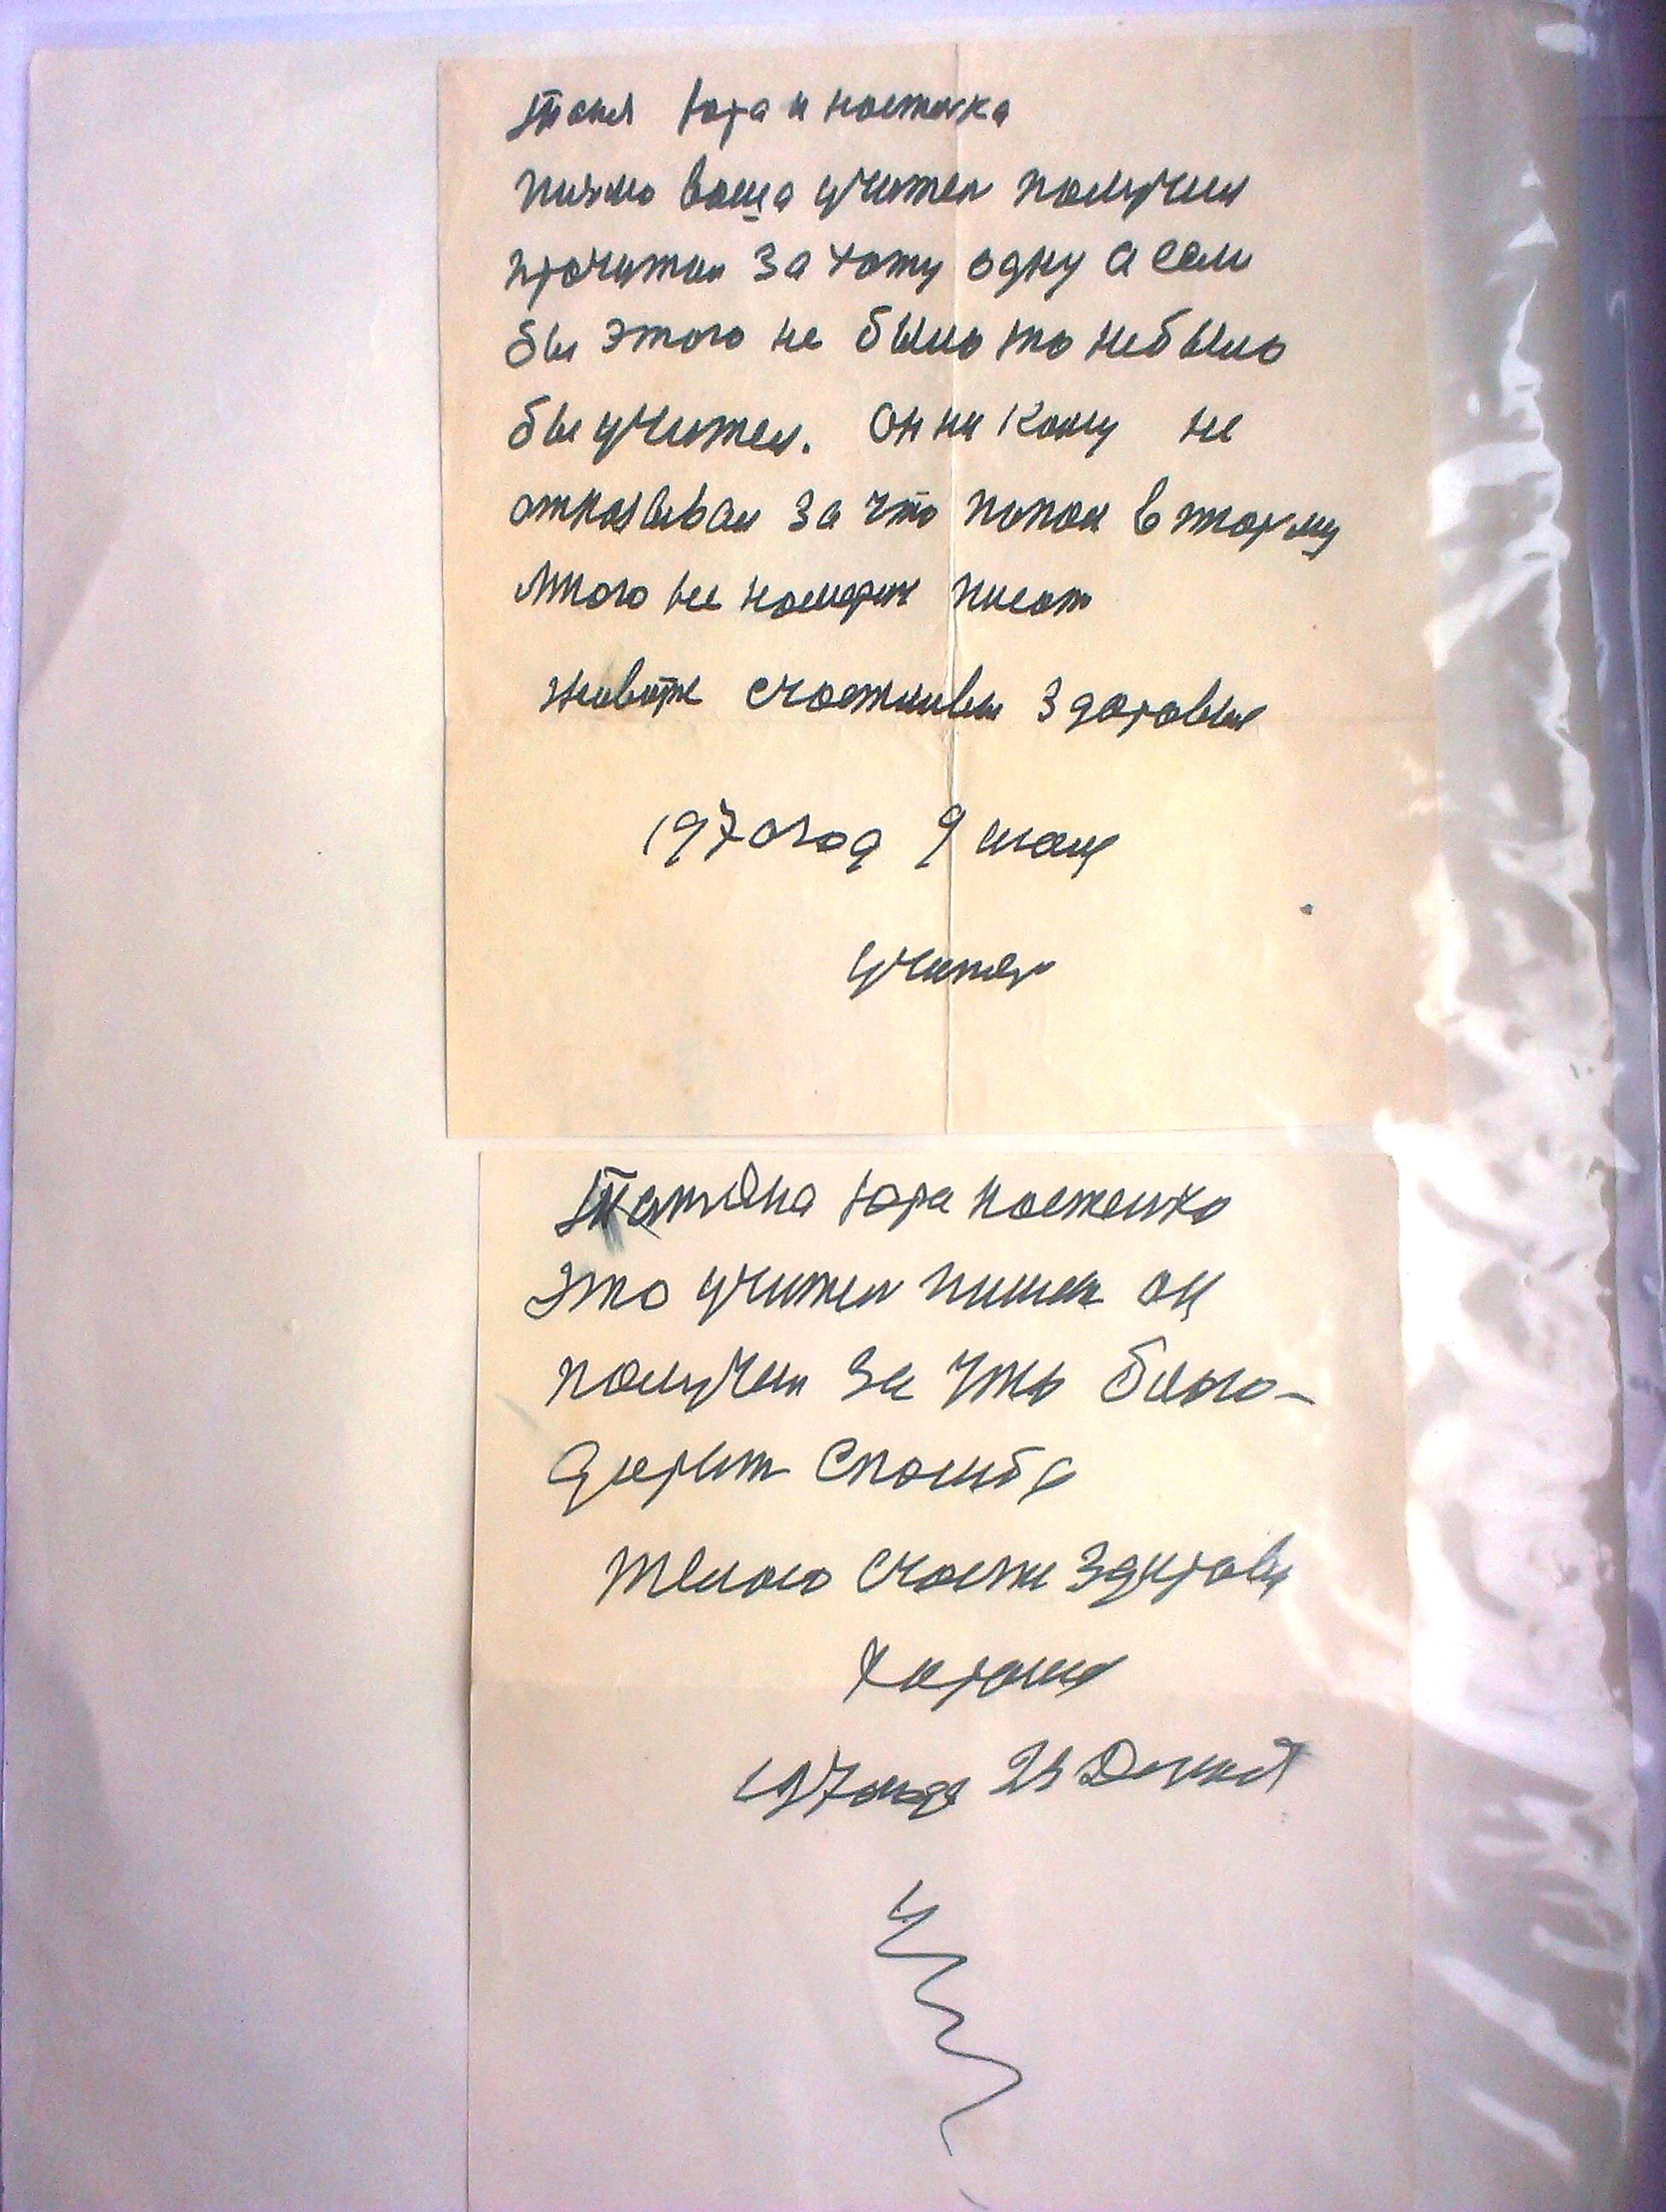 Таня Юра и настичка
писмо ваша учител получил
прочитал за Юому одну а если
бы этого не было то небыло
бы учител. он ни кому не
отказывал за что попал в тюрму
много не намерин писат
живите счастливы здоровые
1970 год 9 июл
учител
Татьяна Юра настенка
это учител пишет он
получил за что благо-
дарит спасиба
желаю счастя здоровя
хорошие
1970 года 23 Декаб